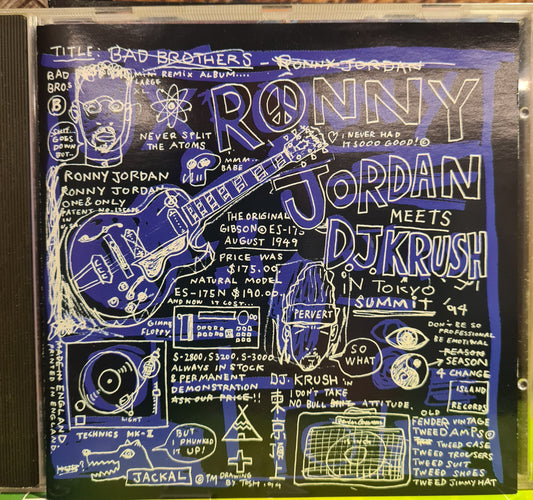 TITLE: BAD BROTHERS - RONNY JORDAN
MINI REMIX ALBUM....
BAD
BROS
B
LARGE
XL
SHIT
GOES
DOWN
BUT..
NEVER SPLIT
THE ATOMS
MMM..
BABE
RONNY
♡ I NEVER HAD
IT SOOO GOOD!©
JORDAN
MEETS
D.J.KRUSH
IN TOKYO
SUMMIT '94
RONNY JORDAN
RONNY JORDAN
ONE & ONLY
PATENT NO.
IN
THE ORIGINAL
GIBSON© ES-175
AUGUST 1949
PRICE WAS
$175.00.
NATURAL MODEL
ES-175N $190.00
AND NOW IT COST...
PERVERT
DON'T BE SO
PROFESSIONAL
BE EMOTIONAL
REASON
→SEASON
4 CHANGE
ISLAND
RECORDS
GIMME
FLOPPY.
SO
WHAT
S-2800, S3200, S-3000
ALWAYS IN STOCK
& PERMANENT
DEMONSTRATION
ASK OUR PRICE!!
MADE IN ENGLAND
PRINTED IN ENGLAND.
LIGHT
TECHNICS MK-II
DJ. KRUSH in
I DON'T TAKE
NO BULL SHIT ATTITUDE.
東京
BUT
I PHUNKED
IT UP!
JACKAL
©TM DRAWING
BY TOSH 1994
OLD
FENDER VINTAGE
TWEED AMPS©
TWEED CASE
TWEED TROUSERS
TWEED SUIT
TWEED SHOES
TWEED JIMMY HAT